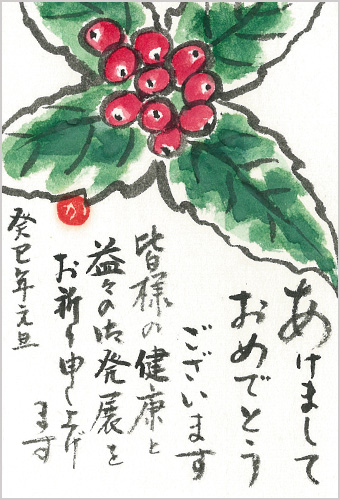 あけまして
おめでとう
ございます
皆様の健康と
益々の御発展を
お祈り申し上げ
ます
癸巳年元旦
か